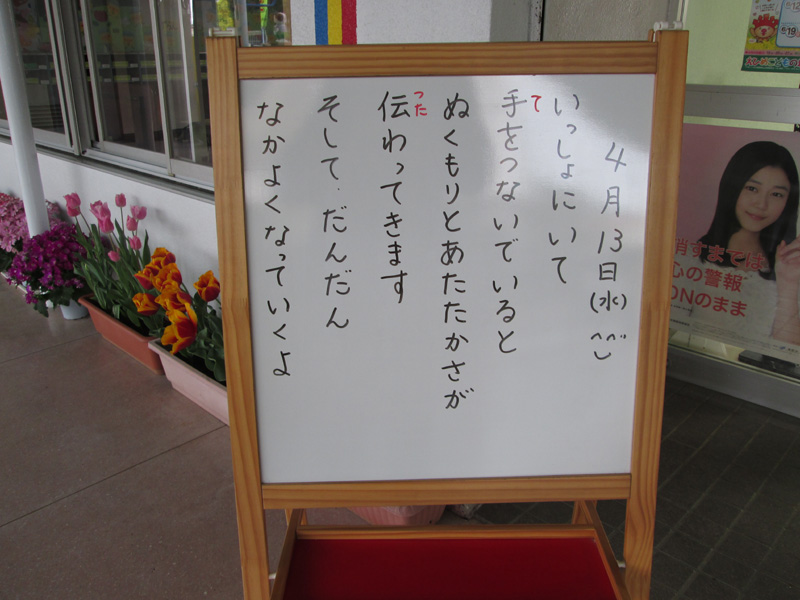 4月13日(水)
いっしょにいて
手をつないでいると
て
ぬくもりとあたたかさが
伝わってきます
つた
そして、だんだん
なかよくなっていくよ
消すまでは
心の警報
ONのまま